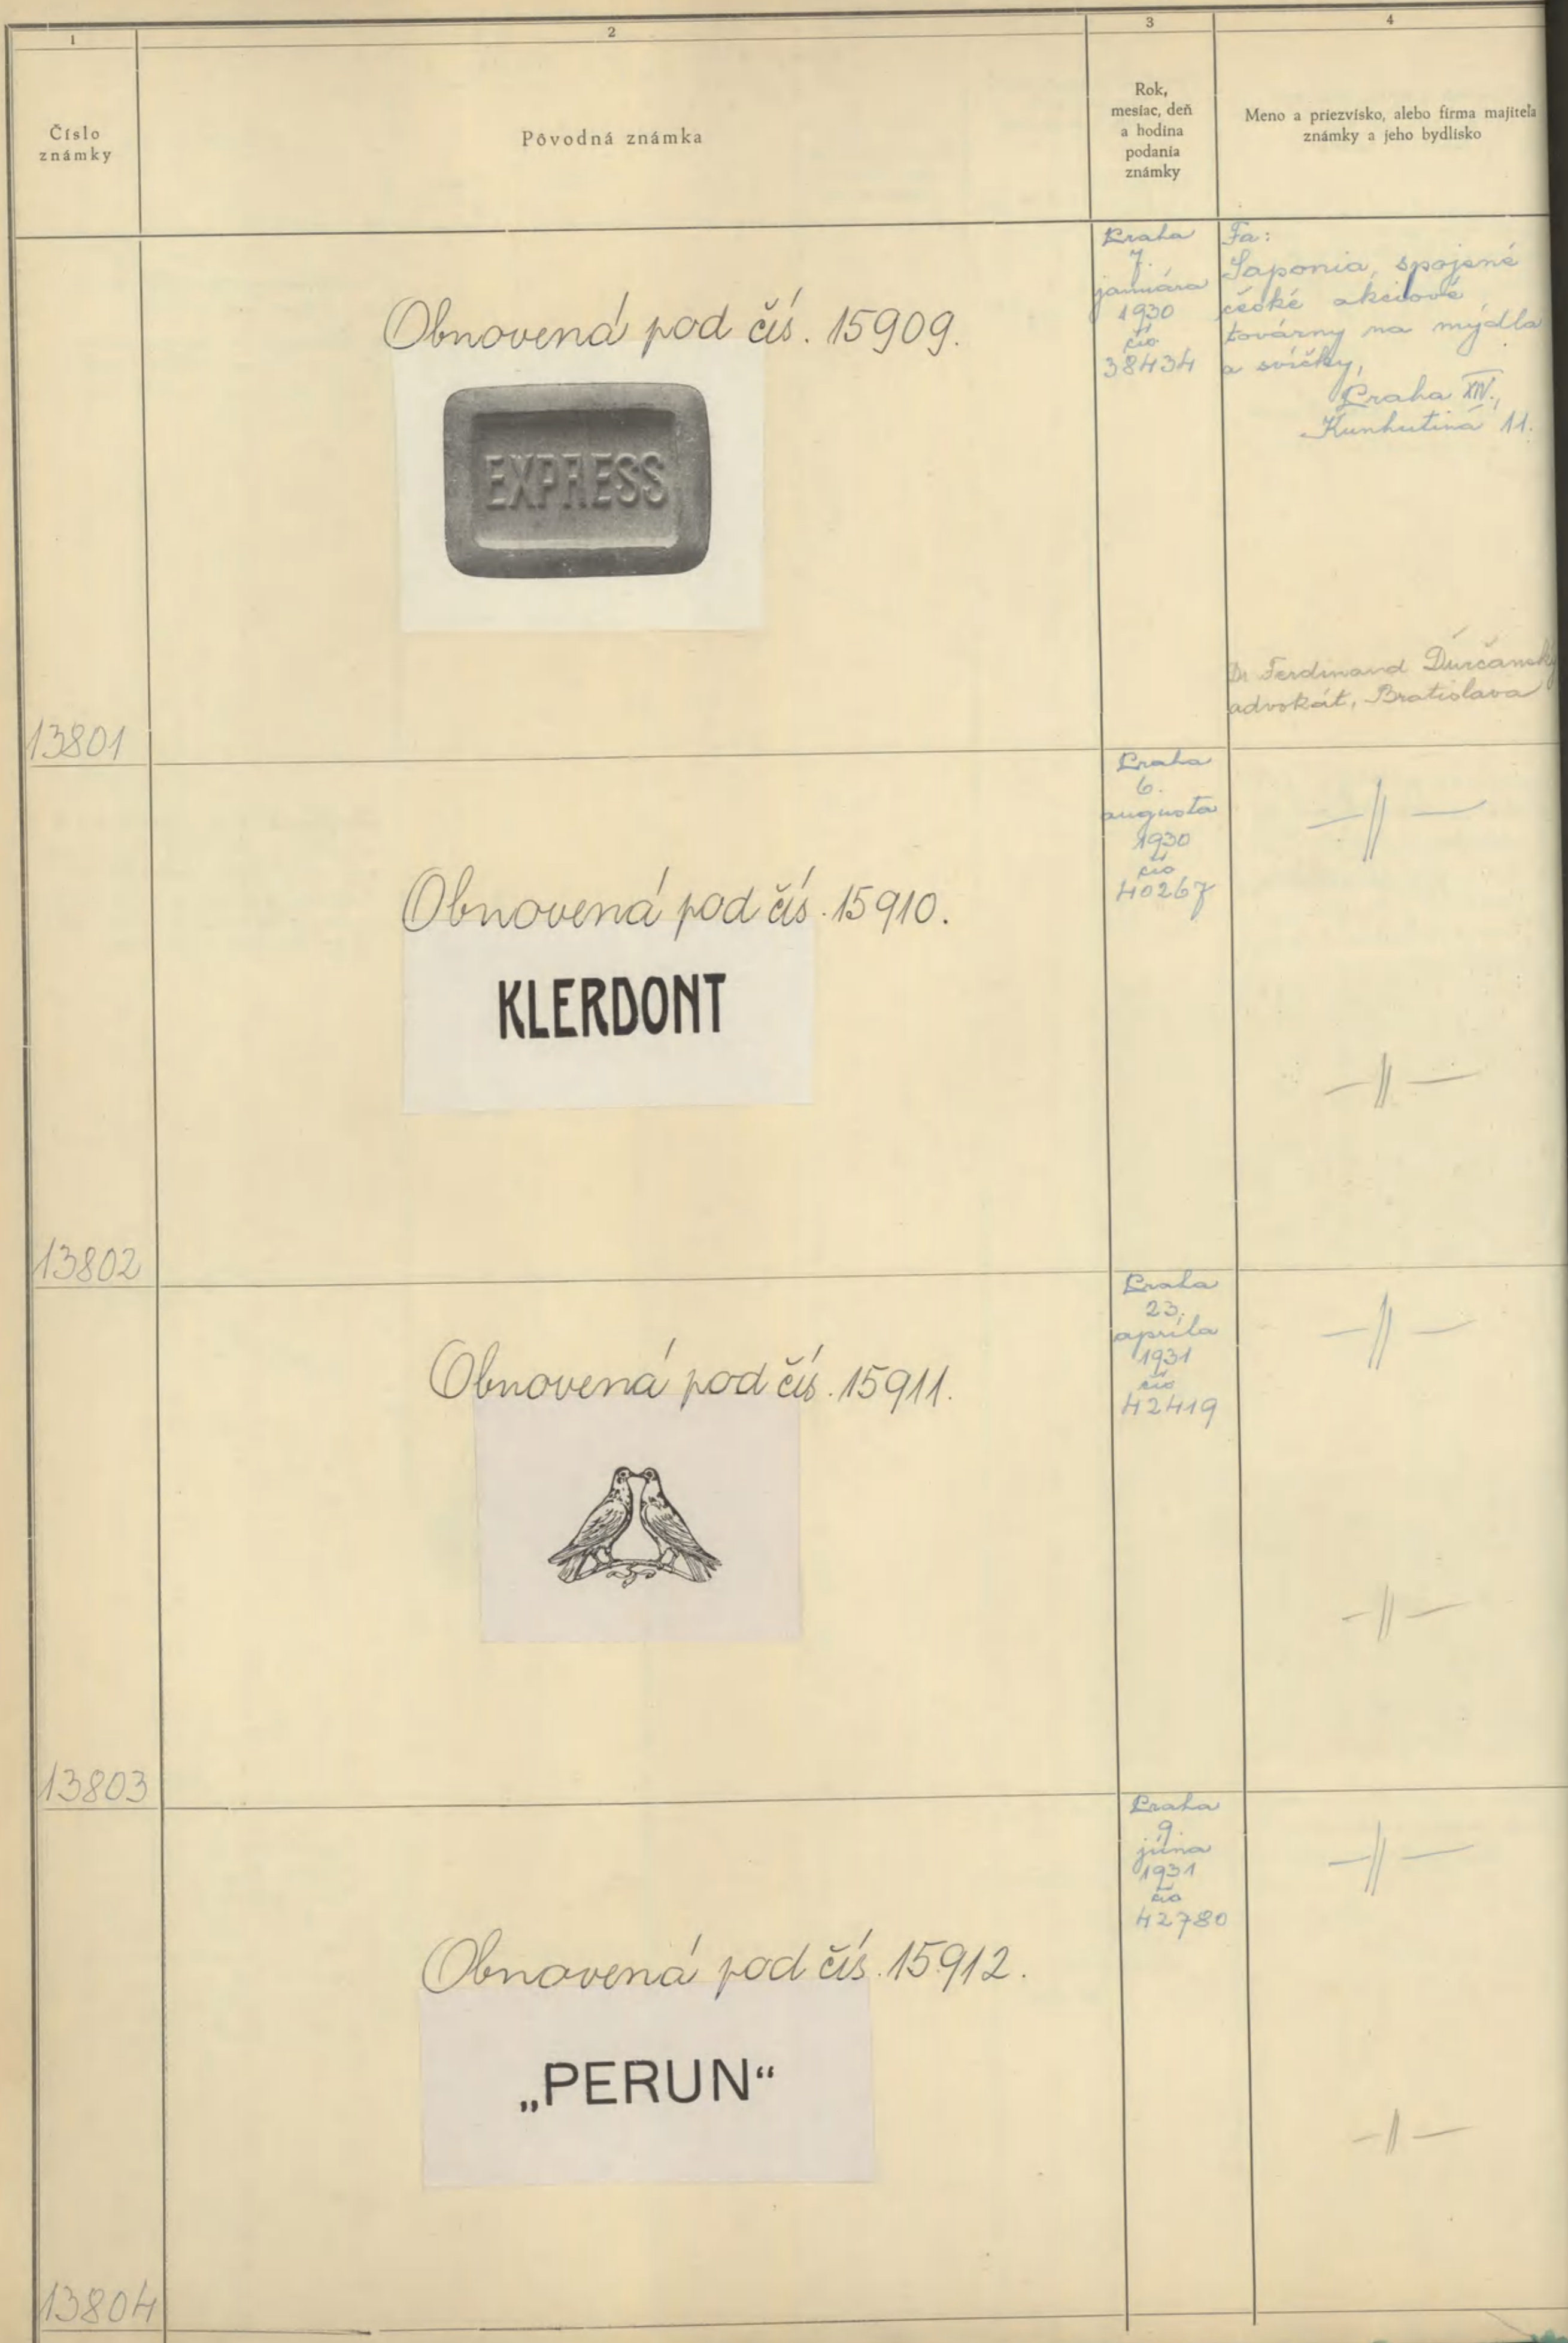 1
2
3
4
Číslo
známky
Pôvodná známka
Rok,
mesiac, deň
a hodina
podania
známky
Meno a priezvisko, alebo firma majiteľa
známky a jeho bydlisko
13801
Obnovená pod čís. 15909.
EXPRESS
Praha
7.
januára
1930
čís
38434
Fa:
Saponia, spojené
české akciové
továrny na mýdla
a svíčky,
Praha XIV.,
Kunhutina 11.
Dr Ferdinand Ďurčanský
advokát, Bratislava
13802
Obnovená pod čís. 15910.
KLERDONT
Praha
6.
augusta
1930
čís
40267
—〃—
—〃—
13803
Obnovená pod čís. 15911.
Praha
23.
apríla
1931
čís
42419
—〃—
—〃—
13804
Obnovená pod čís. 15912.
„PERUN“
Praha
9.
júna
1931
čís
42780
—〃—
—〃—